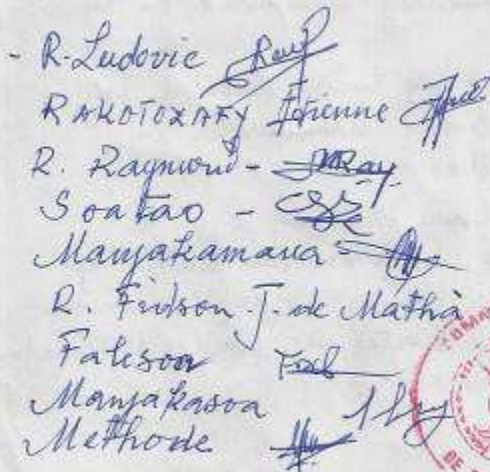 - R. Ludovic
RAKOTOZAFY Etienne
R. Raymond -
Soatao -
Manjakamana -
R. Fidson J. de Matha
Faleson
Manjakasoa
Methode